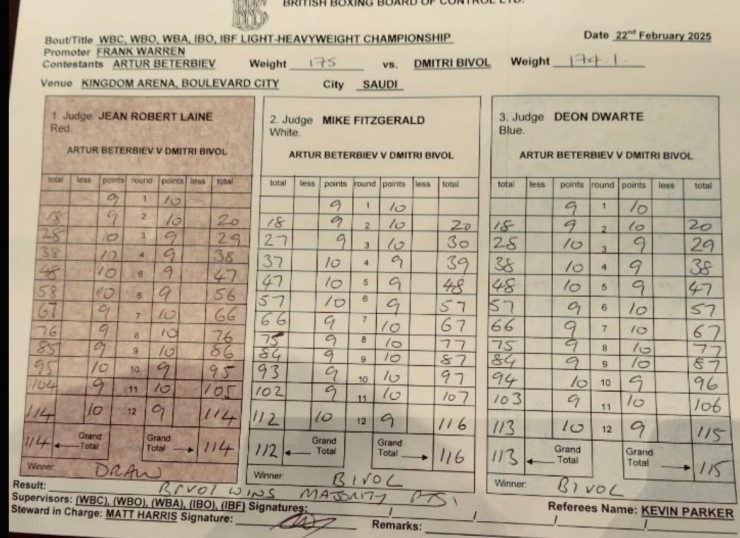 BRITISH BOXING BOARD OF CONTROL LTD.
Bout/Title WBC, WBO, WBA, IBO, IBF LIGHT-HEAVYWEIGHT CHAMPIONSHIP Date 22nd February 2025
Promoter FRANK WARREN
Contestants ARTUR BETERBIEV Weight 175 vs. DMITRI BIVOL Weight 174.1.
Venue KINGDOM ARENA, BOULEVARD CITY City SAUDI
1. Judge JEAN ROBERT LAINE
Red.
ARTUR BETERBIEV V DMITRI BIVOL
total less points round points less total
9 1 10
18 9 2 10 20
28 10 3 9 29
38 10 4 9 38
48 10 5 9 47
58 10 6 9 56
67 9 7 10 66
76 9 8 10 76
85 9 9 10 86
95 10 10 9 95
104 9 11 10 105
114 10 12 9 114
114 Grand Total Grand Total 114
Winner: DRAW
2. Judge MIKE FITZGERALD
White.
ARTUR BETERBIEV V DMITRI BIVOL
total less points round points less total
9 1 10
18 9 2 10 20
27 9 3 10 30
37 10 4 9 39
47 10 5 9 48
57 10 6 9 57
66 9 7 10 67
75 9 8 10 77
84 9 9 10 87
93 9 10 10 97
102 9 11 10 107
112 10 12 9 116
112 Grand Total Grand Total 116
Winner: BIVOL
3. Judge DEON DWARTE
Blue.
ARTUR BETERBIEV V DMITRI BIVOL
total less points round points less total
9 1 10
18 9 2 10 20
28 10 3 9 29
38 10 4 9 38
48 10 5 9 47
57 9 6 10 57
66 9 7 10 67
75 9 8 10 77
84 9 9 10 87
94 10 10 9 96
103 9 11 10 106
113 10 12 9 115
113 Grand Total Grand Total 115
Winner: BIVOL
Result: BIVOL WINS MAJORITY PTS.
Supervisors: (WBC), (WBO), (WBA), (IBO), (IBF) Signatures: / / / /
Referees Name: KEVIN PARKER
Steward in Charge: MATT HARRIS Signature: Remarks: